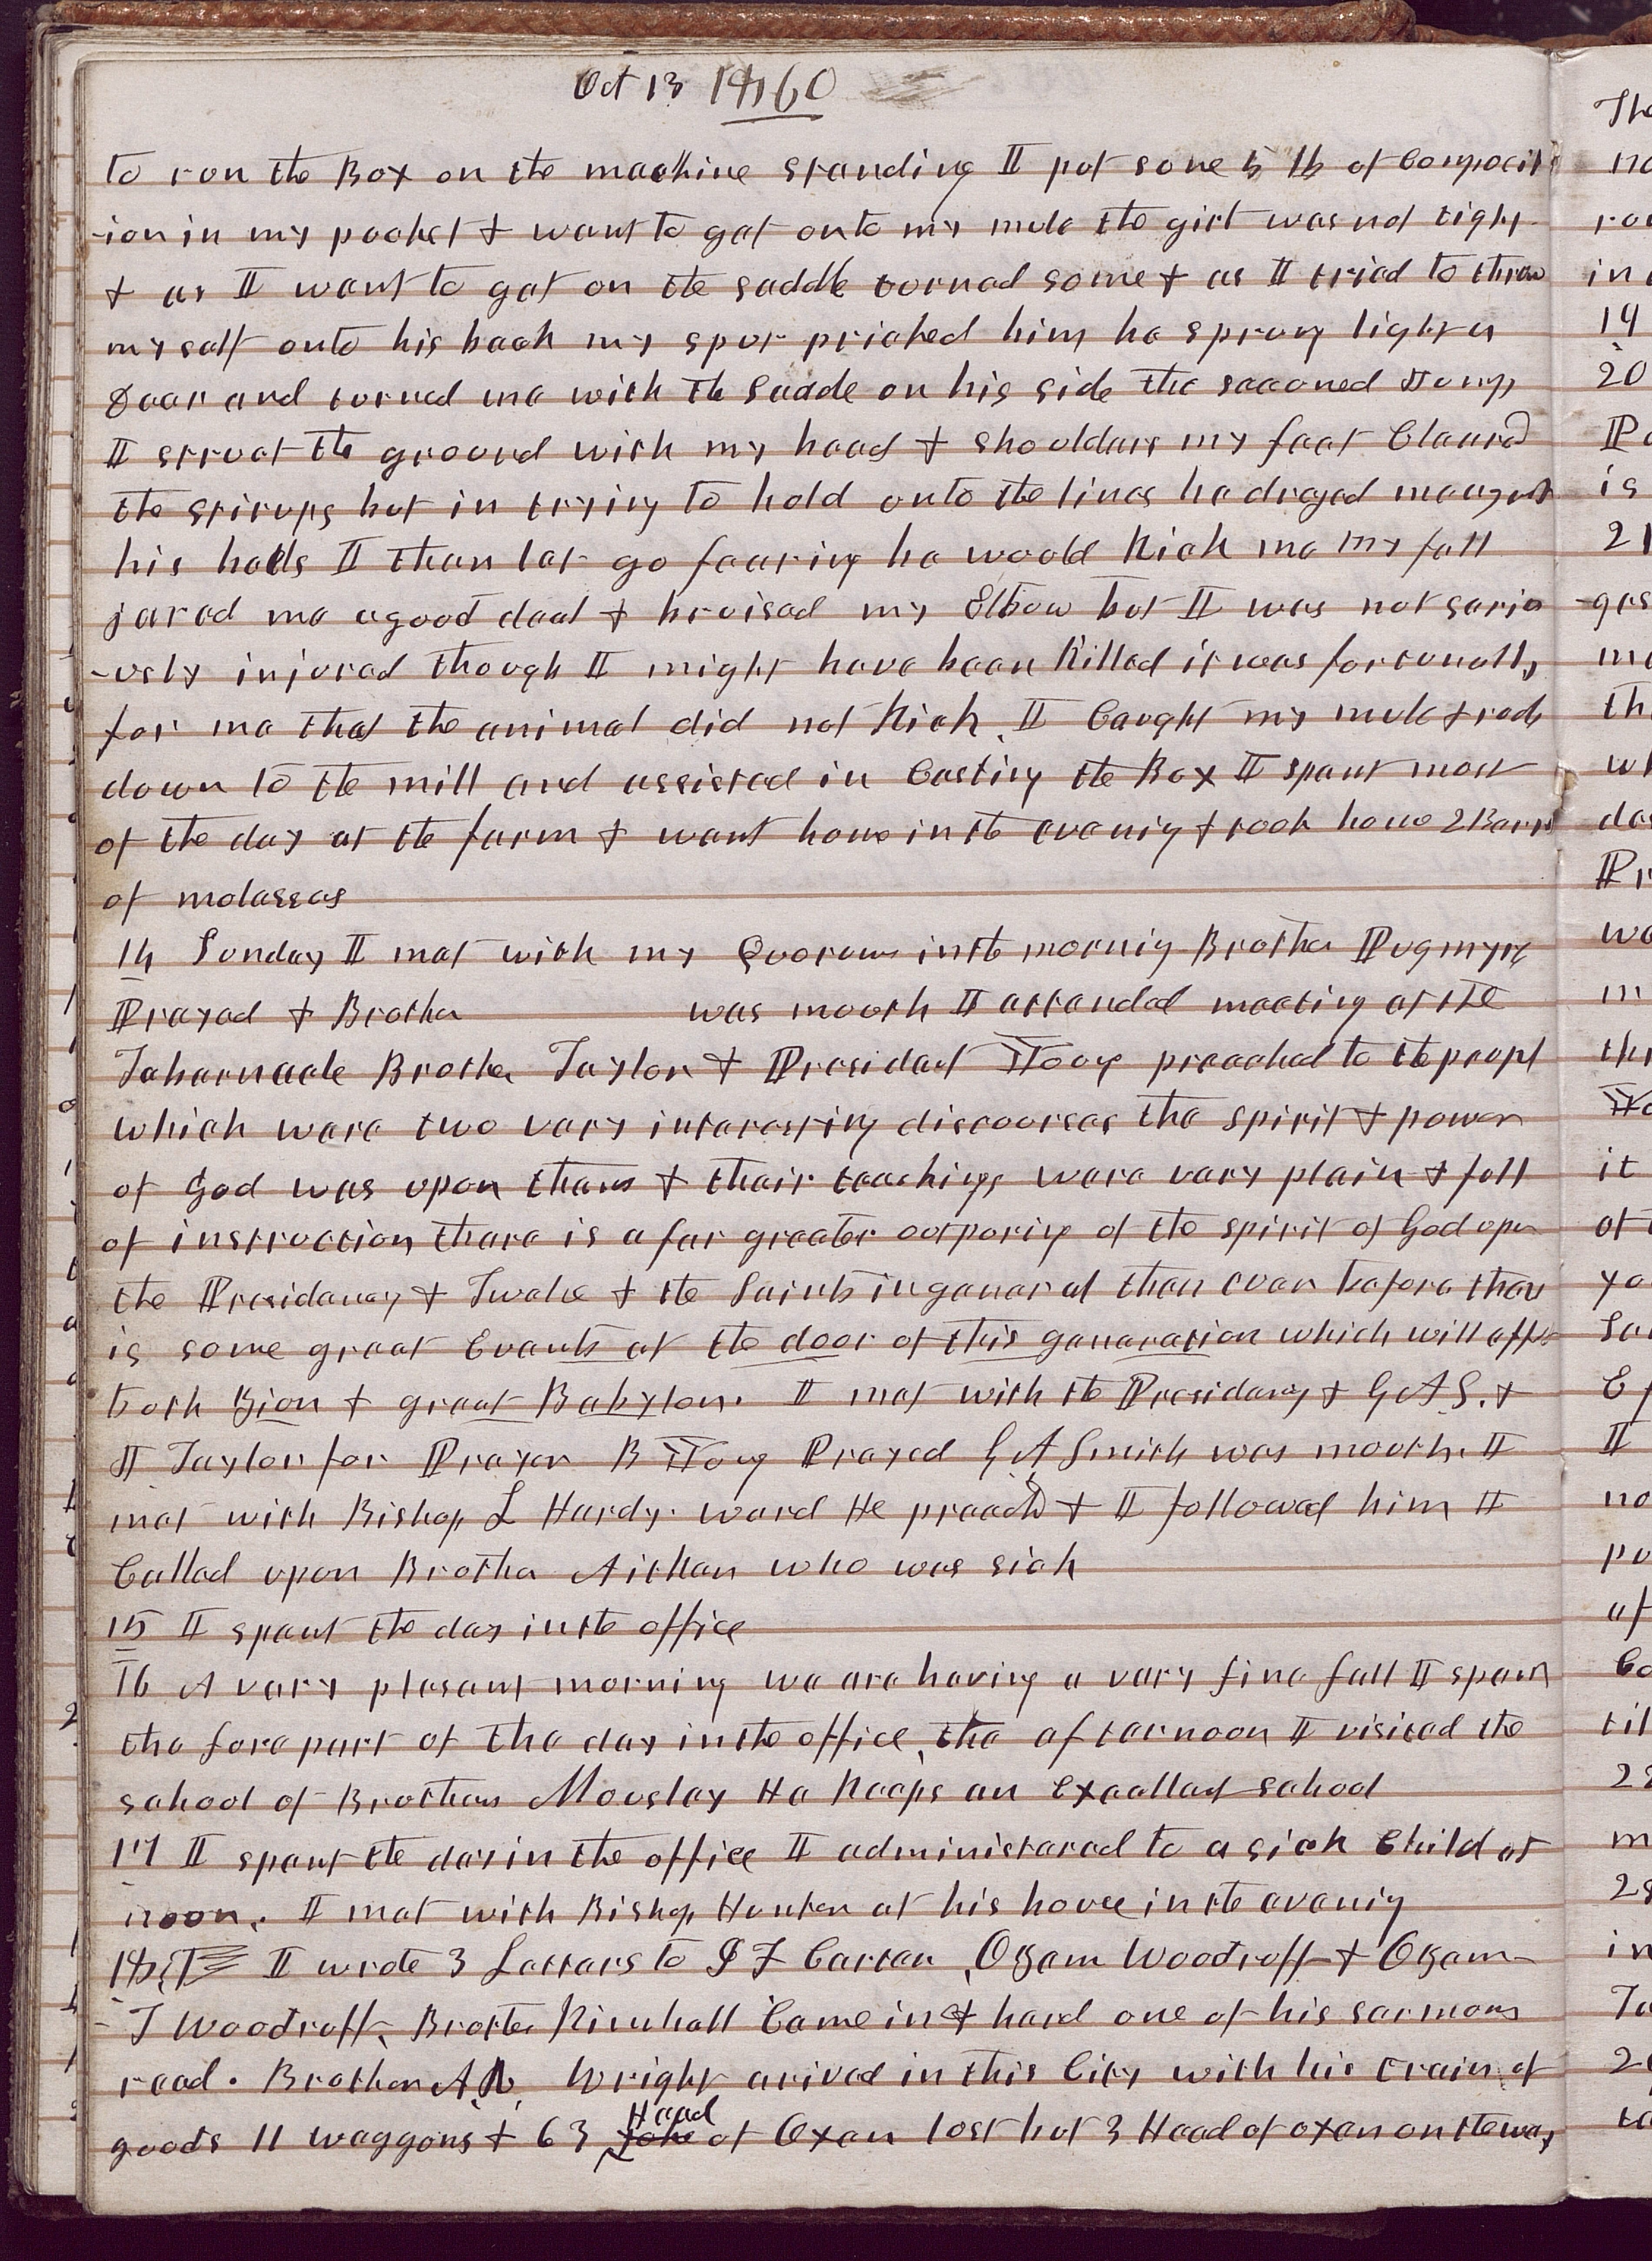 Oct 13 1860
to run the Box on the machine standing I put some 5 lb of Composit
-ion in my pocket & went to get onto my mule the girt was not tight
& as I went to get on the saddle turned some & as I tried to throw
myself onto his back my spur pricked him he sprung like a
Deer and turned me with the Saddle on his side the seccond Jump
I struct the ground with my head & shoulders my feet Cleared
the stirups but in trying to hold onto the lines he draged me against
his heels I then let go fearing he would Kick me my fall
jared me a good deal & bruised my Elbow but I was not serio
-usly injured though I might have been Killed it was fortunatly
for me that the animal did not Kick. I Caught my mule & rode
down to the mill and assisted in Casting the Box I spent most
of the day at the farm & went home in the evening & took home 2 Barrels
of molasses
14 Sunday I met with my Quorum in the morning Brother Pugmyre
Prayed & Brother was mouth I attended meeting at the
Tabernacle Brother Taylor & Presidet Young preached to the people
which were two very interesting discourses the spirit & power
of God was upon them & their teachings were very plain & full
of instruction there is a far greater outporing of the spirit of God upon
the Presidency & Twelve & the Saints in general than ever before there
is some great Events at the door of this generation which will affect
both Zion & great Babylon. I met with the Presidency & G A S. &
J Taylor for Prayer B Young Prayed G A Smith was mouth. I
met with Bishop L Hardy ward He preached & I followed him I
Called upon Brother Aitken who was sick
15 I spent the day in the office
16 A very plesant morning we are having a very fine fall I spent
the fore part of the day in the office, the afternoon I visited the
school of Brothers Mousley He Keeps an excellet school
17 I spent the day in the office I administered to a sick Child at
noon. I met with Bishop Hunter at his house in the evening
18 I wrote 3 Letters to I F Carter, Ozem Woodruff & Ozem
T Woodruff, Brother Kimball Came in & hard one of his sermons
read. Brother A R Wright arived in this City with his train of
goods 11 waggons & 63 yoke Head of Oxen lost but 3 Head of oxen on the way